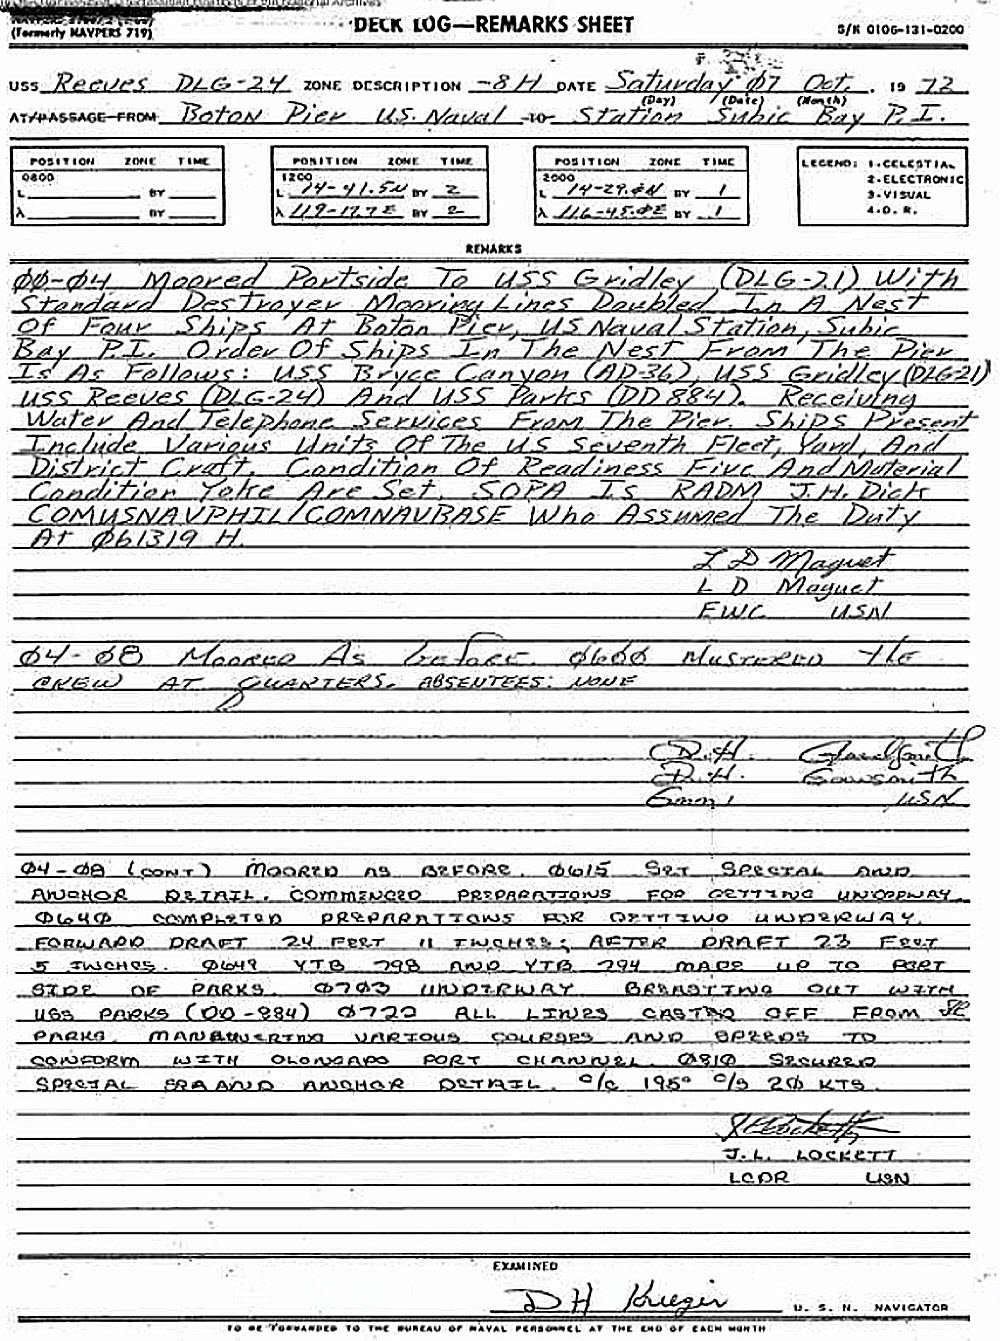 DECK LOG—REMARKS SHEET
(Formerly NAVPERS 719)
S/N 0106-131-0200
USS Reeves DLG-24 ZONE DESCRIPTION -8H DATE Saturday 07 Oct. 19 72
(Day) (Date) (Month)
AT/PASSAGE FROM Boton Pier U.S. Naval TO Station Subic Bay P.I.
POSITION ZONE TIME
0800
L BY
λ BY
POSITION ZONE TIME
1200
L 14-41.5N BY 2
λ 119-17.7E BY 2
POSITION ZONE TIME
2000
L 14-29.0N BY 1
λ 116-45.0E BY 1
LEGEND: 1-CELESTIAL
2-ELECTRONIC
3-VISUAL
4-D. R.
REMARKS
00-04 Moored Portside To USS Gridley (DLG-21) With
Standard Destroyer Mooring Lines Doubled In A Nest
Of Four Ships At Boton Pier, US Naval Station, Subic
Bay P.I. Order Of Ships In The Nest From The Pier
Is As Follows: USS Bryce Canyon (AD-36), USS Gridley (DLG21)
USS Reeves (DLG-24) And USS Parks (DD 884). Receiving
Water And Telephone Services From The Pier. Ships Present
Include Various Units Of The US Seventh Fleet, Yard, And
District Craft. Condition Of Readiness Five And Material
Condition Yoke Are Set. SOPA Is RADM J.H. Dick
COMUSNAVPHIL/COMNAVBASE Who Assumed The Duty
At 061319 H.
L D Maquet
L D Maquet
EWC USN
04-08 Moored As before. 0600 Mustered the
crew at quarters. Absentees: None
D.H.
D.H.
USN
04-08 (CONT) MOORED AS BEFORE. 0615 SET SPECIAL AND
ANCHOR DETAIL. COMMENCED PREPARATIONS FOR GETTING UNDERWAY.
0640 COMPLETED PREPARATIONS FOR GETTING UNDERWAY.
FORWARD DRAFT 24 FEET 11 INCHES; AFTER DRAFT 23 FEET
5 INCHES. 0649 YTB 798 AND YTB 794 MADE UP TO PORT
SIDE OF PARKS. 0703 UNDERWAY BREASTING OUT WITH
USS PARKS (DD-884) 0722 ALL LINES CASTED OFF FROM
PARKS. MANEUVERING VARIOUS COURSES AND SPEEDS TO
CONFORM WITH OLONGAPO PORT CHANNEL. 0810 SECURED
SPECIAL SEA AND ANCHOR DETAIL. c/c 195° c/s 20 KTS.
J.L. LOCKETT
LCDR USN
EXAMINED
D H Krueger
U. S. N. NAVIGATOR
TO BE FORWARDED TO THE BUREAU OF NAVAL PERSONNEL AT THE END OF EACH MONTH